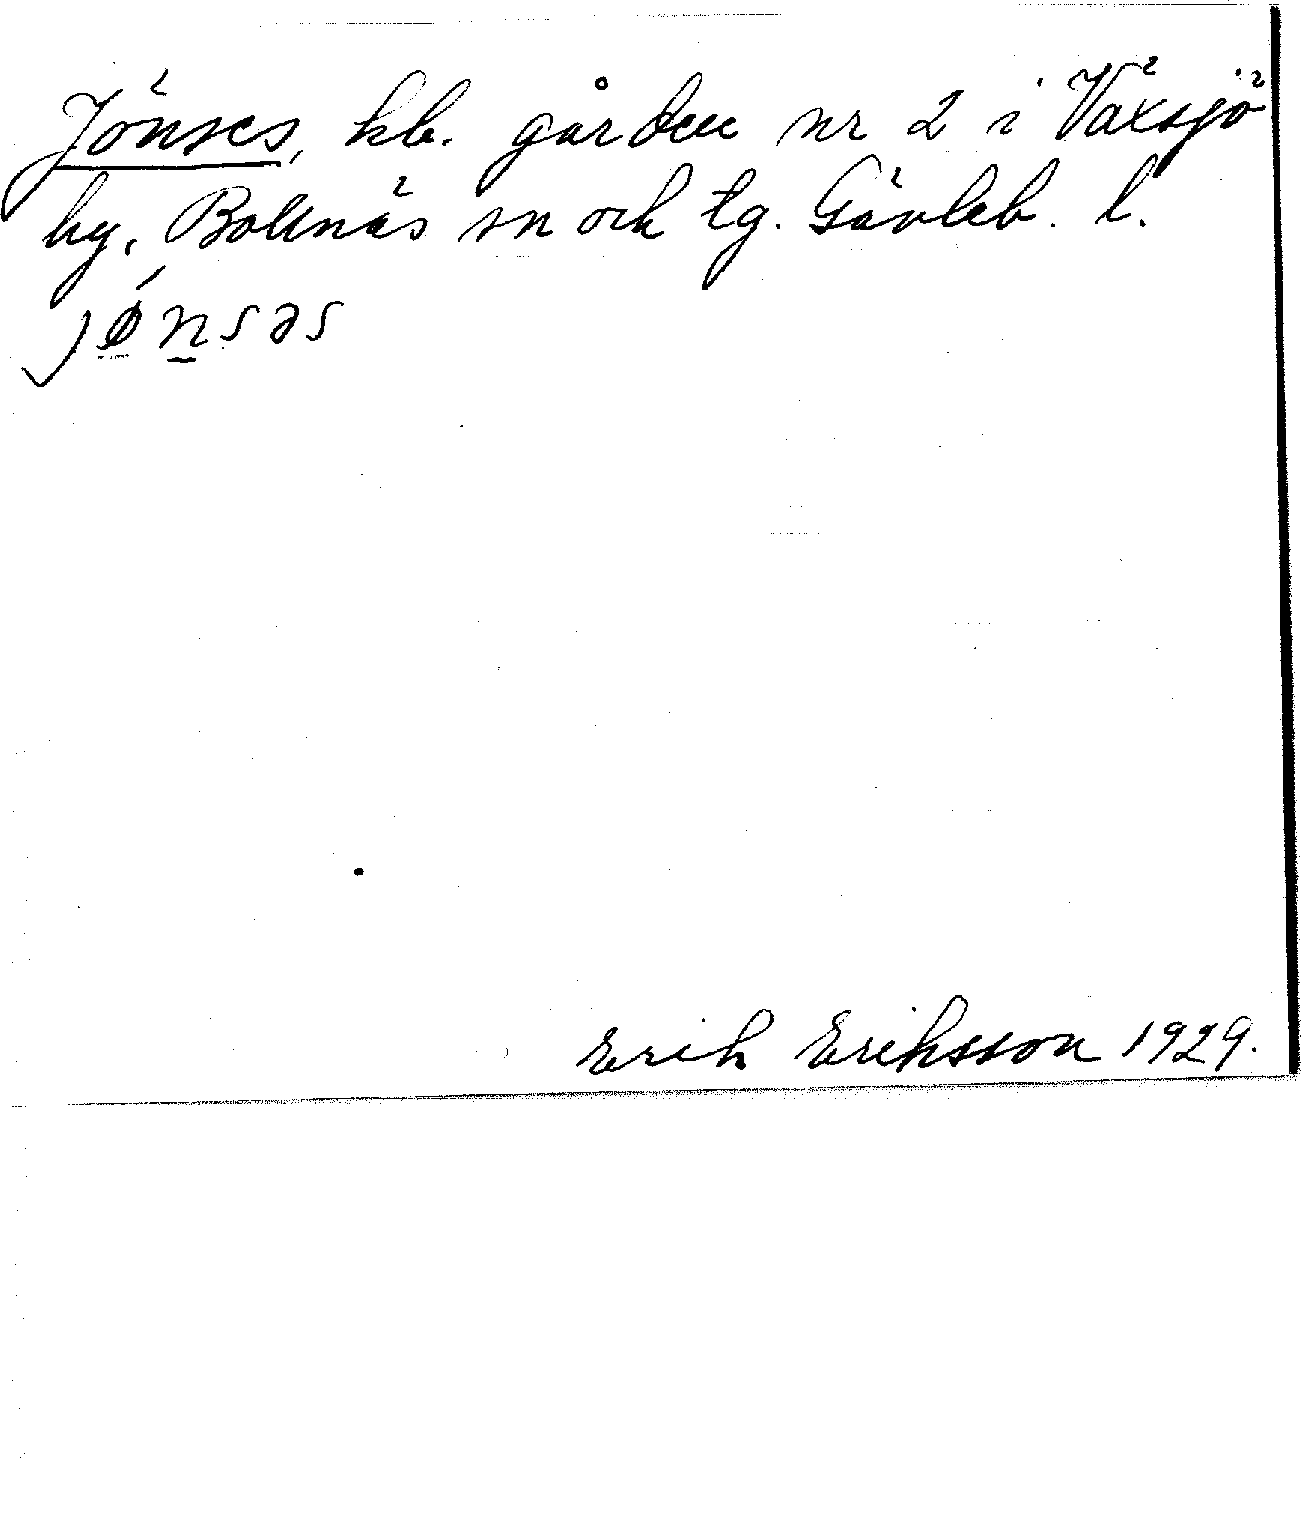 Jönses, hb. gården nr 2 i Växsjö
by, Bollnäs sn och tg. Gävleb. l.
jǿn̲səs
Erik Eriksson 1929.